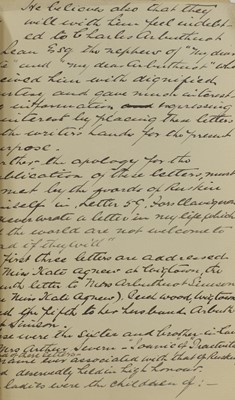 He believes also that they
will with him feel indebt-
ed to Charles Arbuthnot
Esq the nephew of "My dear
" and "my dear Arbuthnot" who
him with dignified
and gave much interest
information and expressing
interest by placing these letters
the writers hands for the present
rpose.
the apology for the
blication of these letters, must
met by the words of Ruskin
mself in, Letter 59, Fors Clavigera
never wrote a letter in my life which
the world are not welcome to
d if they will"
first three letters are addressed
Miss Kate Agnew at Wigtown, the
th letter to Mrs Arbuthnot Simson
Miss Kate Agnew). Glenwood, Wigtown
the fifth to her husband, Arbuth
Simson.
se were the Sister and brother-in-law
Mrs Arthur Severn - "Joanie of Praeterita
name ever associated with that of Ruskin
d deservedly held in high honour.
ladies were the children of: -